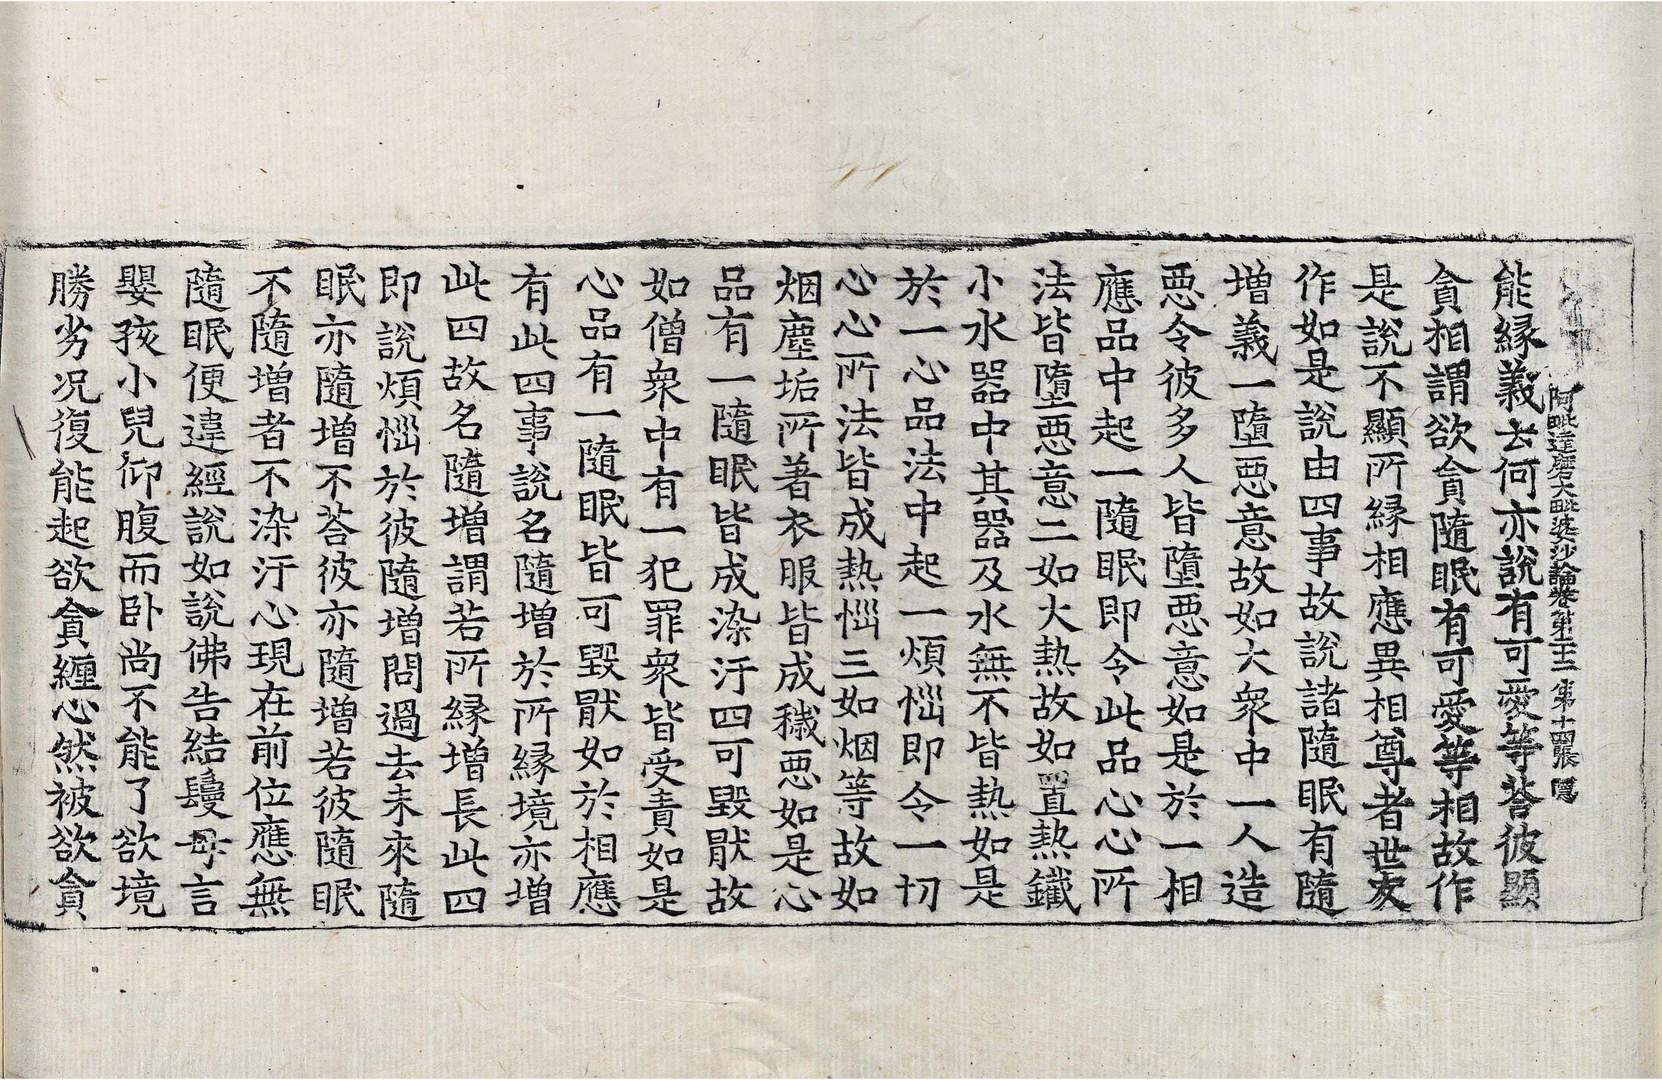 阿毗達磨大毗婆沙論卷第二十二 第十四張 隱
能緣義云何亦說有可愛等荅彼顯
貪相謂欲貪隨眠有可愛等相故作
是說不顯所緣相應異相尊者世友
作如是說由四事故說諸隨眠有隨
增義一墮惡意故如大衆中一人造
惡令彼多人皆墮惡意如是於一相
應品中起一隨眠即令此品心心所
法皆墮惡意二如大熱故如置熱鐵
小水器中其器及水無不皆熱如是
於一心品法中起一煩惱即令一切
心心所法皆成熱惱三如烟等故如
烟塵垢所著衣服皆成穢惡如是心
品有一隨眠皆成染汙四可毀猒故
如僧衆中有一犯罪衆皆受責如是
心品有一隨眠皆可毀猒如於相應
有此四事說名隨增於所緣境亦增
此四故名隨增謂若所緣增長此四
即說煩惱於彼隨增問過去未來隨
眠亦隨增不荅彼亦隨增若彼隨眠
不隨增者不染汙心現在前位應無
隨眠便違經說如說佛告結鬘母言
嬰孩小兒仰腹而卧尚不能了欲境
勝劣况復能起欲貪纏心然被欲貪